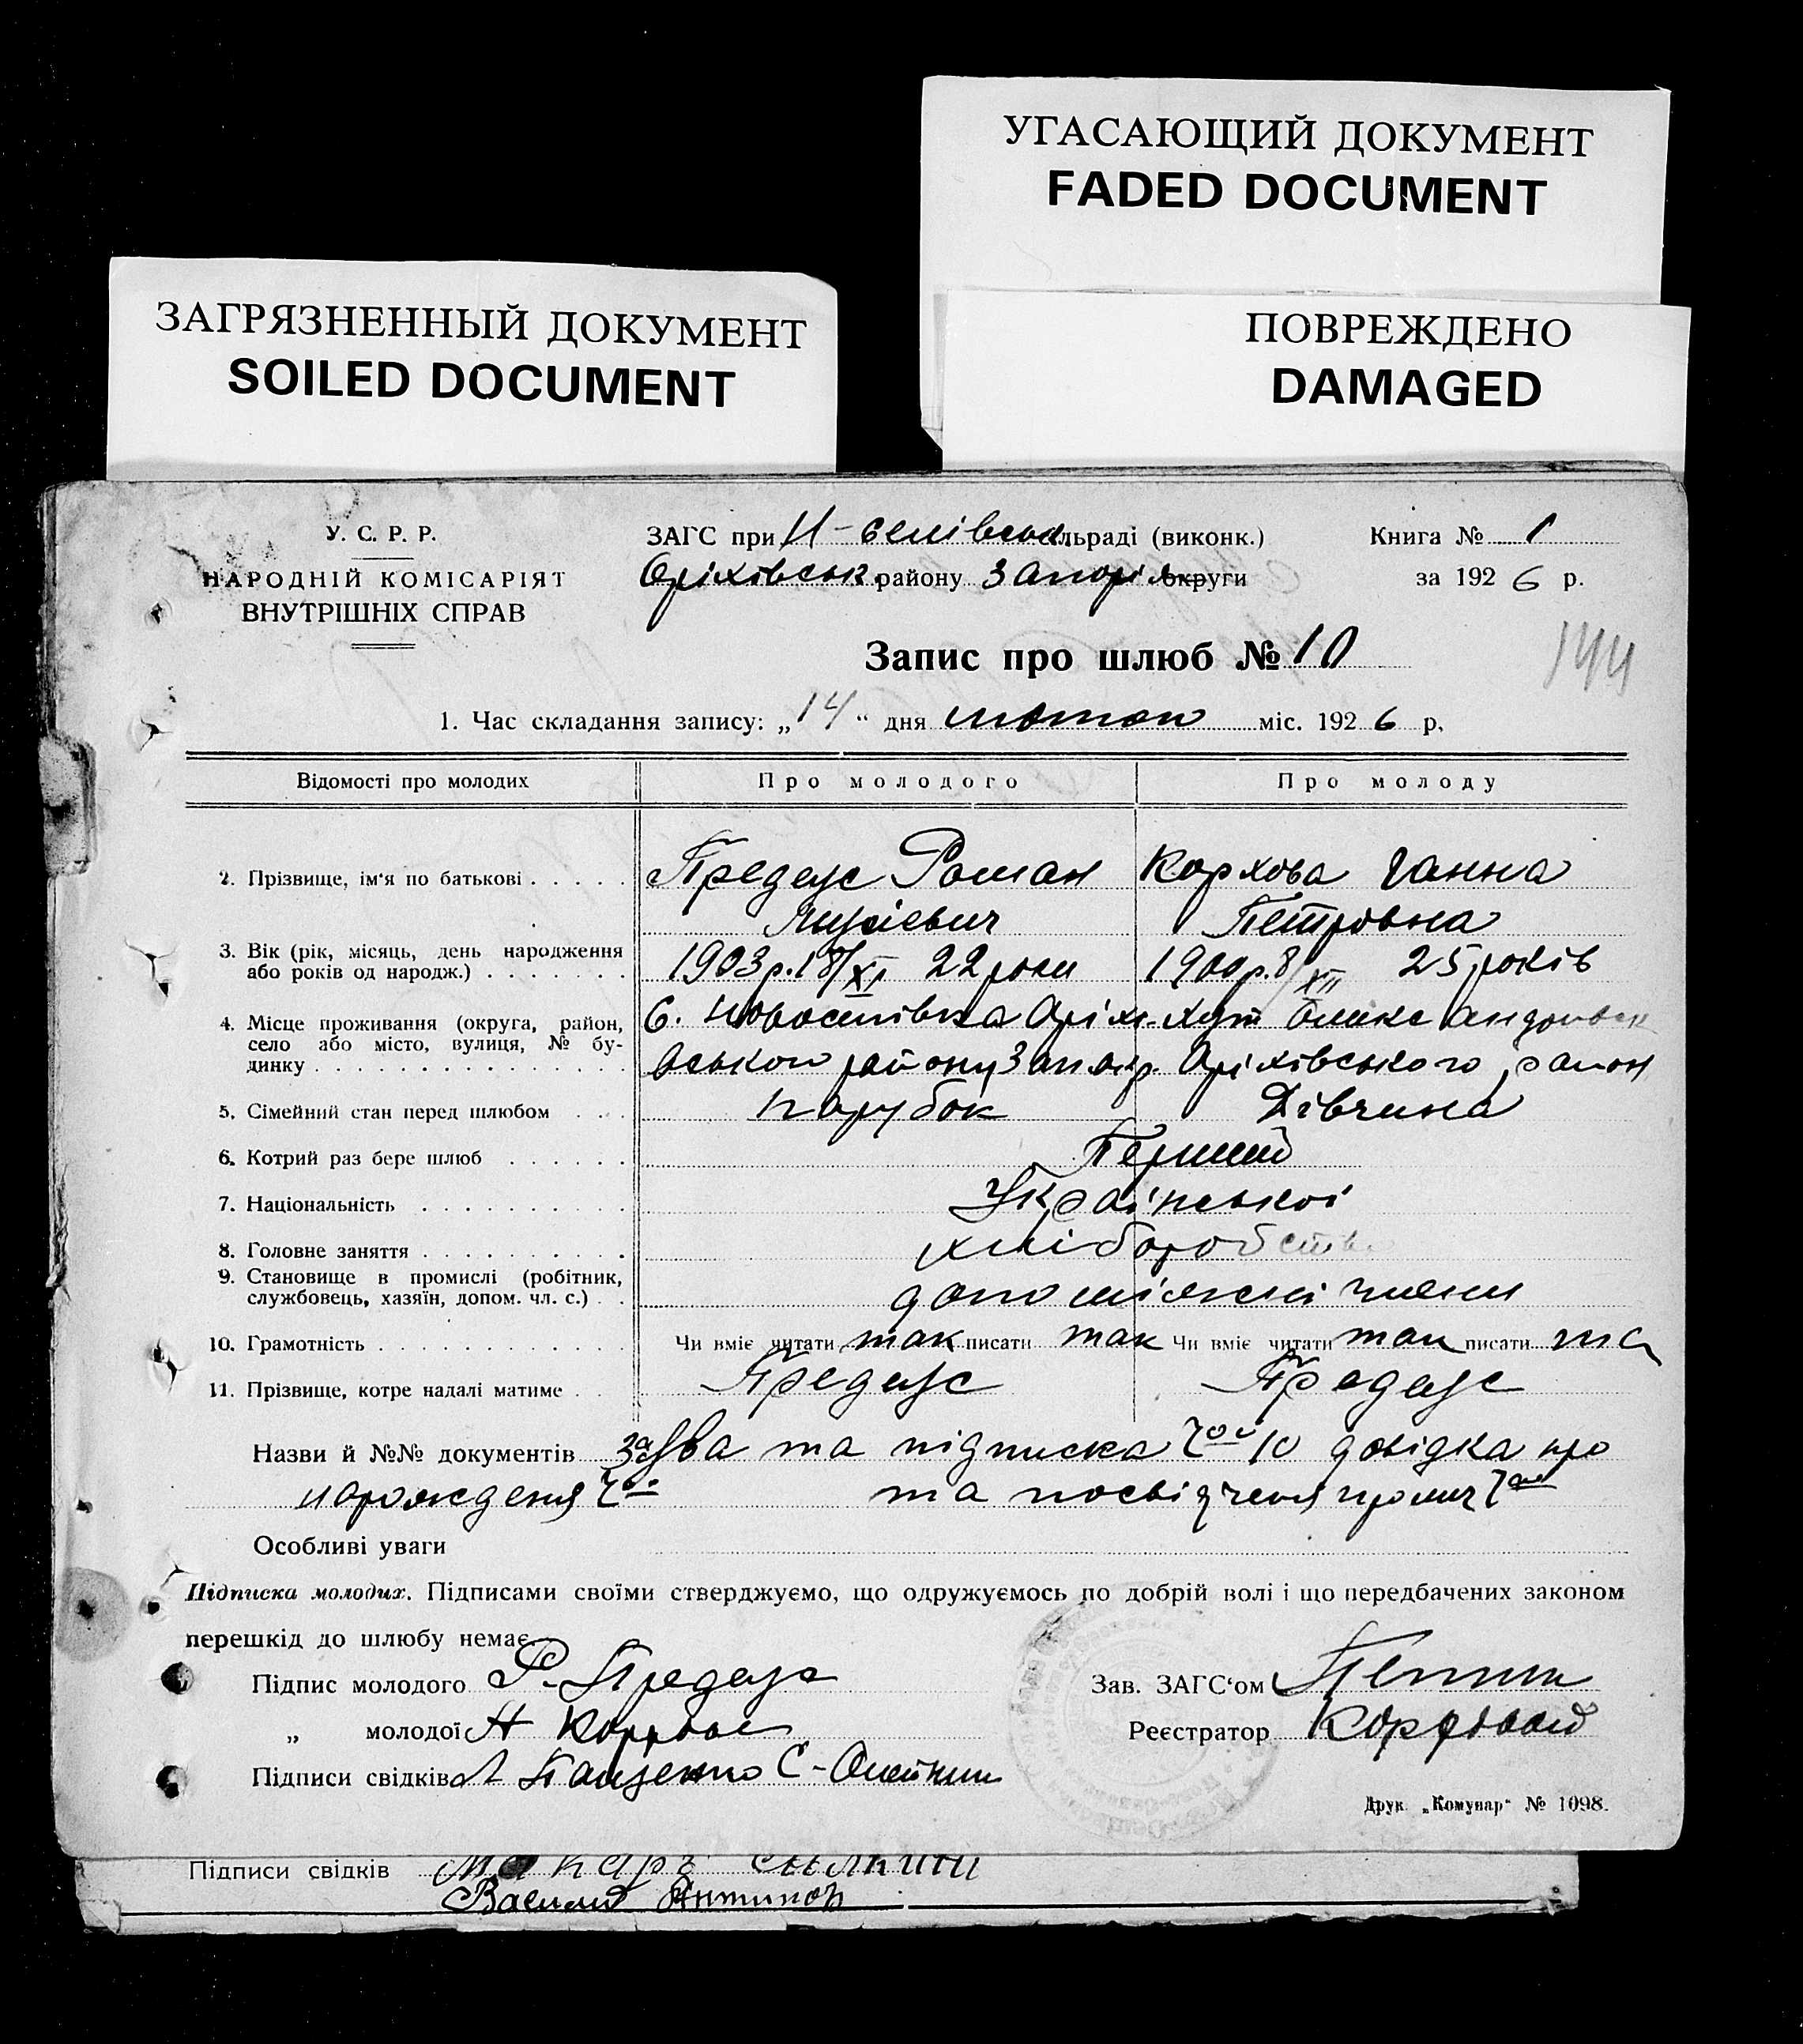 УГАСАЮЩИЙ ДОКУМЕНТ
FADED DOCUMENT
ЗАГРЯЗНЕННЫЙ ДОКУМЕНТ
SOILED DOCUMENT
ПОВРЕЖДЕНО
DAMAGED
У. С. Р. Р.
НАРОДНІЙ КОМІСАРІЯТ
ВНУТРІШНІХ СПРАВ
ЗАГС при Н-селівськ льраді (виконк.)
Оріхівськ району Запоріж округи
Книга № 1
за 1926 р.
Запис про шлюб № 10
144
1. Час складання запису: „14“ дня лютого міс. 1926 р.
Відомості про молодих Про молодого Про молоду
2. Прізвище, ім‘я по батькові Предеус Роман Корхова Ганна
Петровна
3. Вік (рік, місяць, день народження
або років од народж.) 1903р. 18/XI 22 роки 1900р. 8/XII 25 років
4. Місце проживання (округа, район,
село або місто, вулиця, № бу-
динку
С. Новоселівка Оріхі- Хут Олександровск
вського району Запокр. Оріхівського район
5. Сімейний стан перед шлюбом парубок Дівчина
6. Котрий раз бере шлюб Перший
7. Національність Української
8. Головне заняття хліборобство
9. Становище в промислі (робітник,
службовець, хазяїн, допом. чл. с.) допоміжні члени
10. Грамотність Чи вміє читати так писати так Чи вміє читати так писати так
11. Прізвище, котре надалі матиме Предеус Предеус
Назви й №№ документів Заява та підписка 10 довідка про
нарождення та посвідчення
Особливі уваги
Підписка молодих. Підписами своїми стверджуємо, що одружуємось по добрій волі і що передбачених законом
перешкід до шлюбу немає.
Підпис молодого Р. Предеус
„ молодої А
Підписи свідків С-Олейник
Зав. ЗАГС‘ом
Реєстратор
Друк. „Комунар“ № 1098.
Підписи свідків Макаръ
Василий Антипов